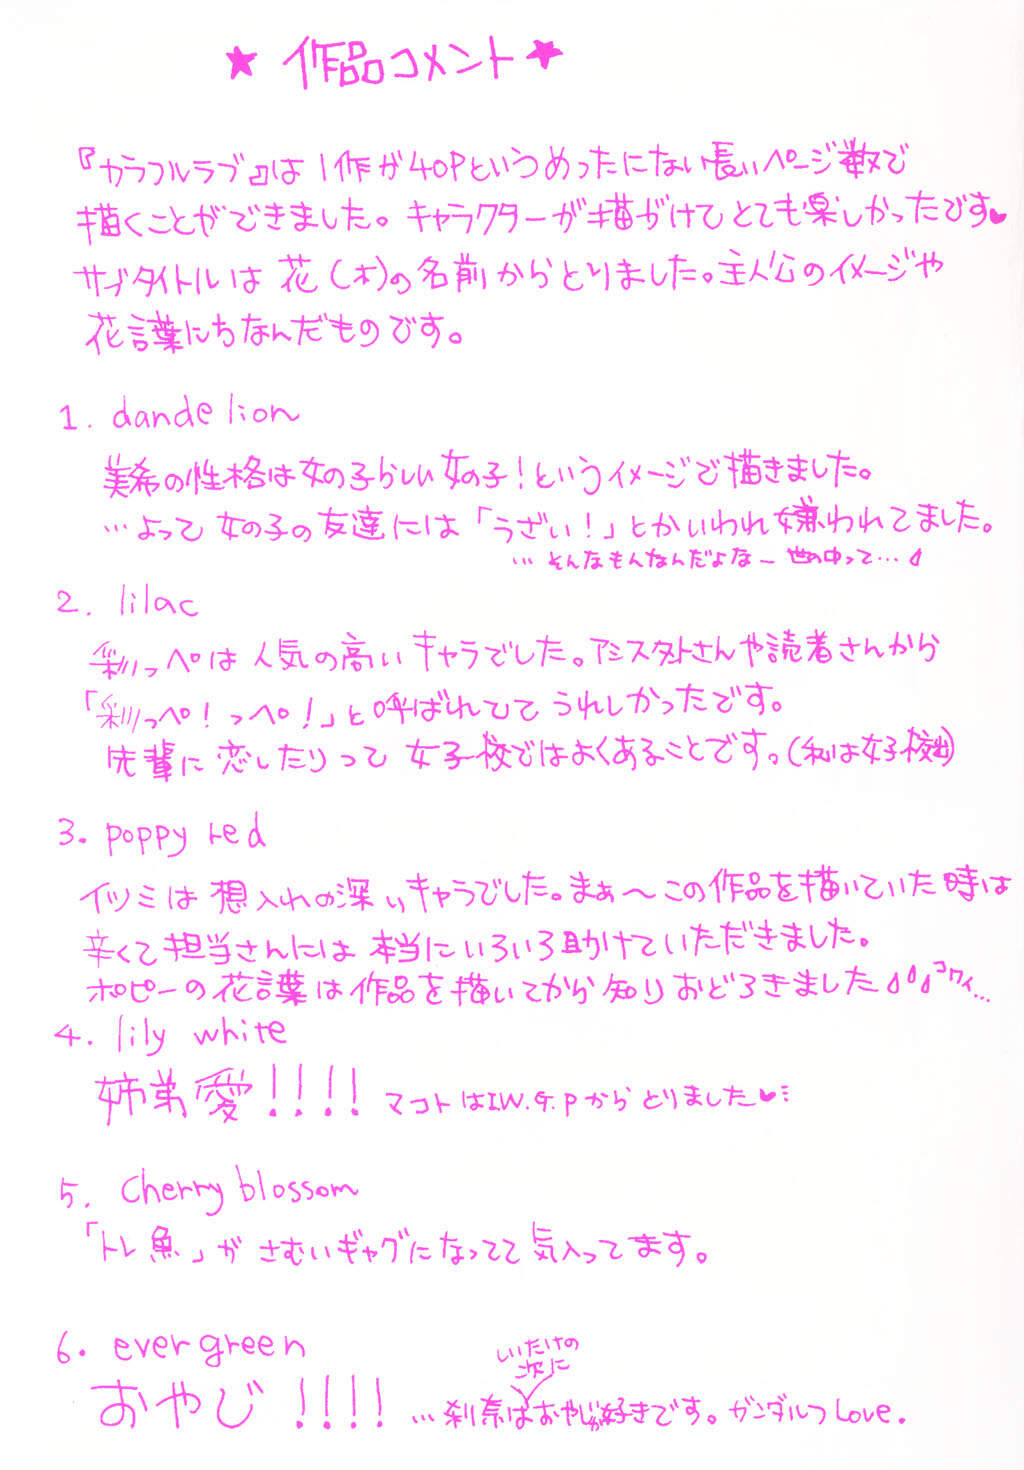 ★ 作品コメント ★
『カラフルラブ』は1作が40Pというめったにない長いページ数で
描くことができました。キャラクターが描ががけてとても楽しかったです♥
サブタイトルは花(木)の名前からとりました。主人公のイメージや
花言葉にちなんだものです。
1. dandelion
美希の性格は女の子らしい女の子!というイメージで描きました。
…よって女の子の友達には「うざい!」とかいわれ嫌われてました。
…そんなもんなんだよなー 世の中って…
2. lilac
彩っぺは人気の高いキャラでした。アシスタントさんや読者さんから
「彩っぺ!っぺ!」と呼ばれてて うれしかったです。
先輩に恋したりって 女子校ではよくあることです。(私は女子校出)
3. poppy red
イツミは想入れの深いキャラでした。まぁ〜この作品を描いていた時は
辛くて担当さんには本当にいろいろ助けていただきました。
ポピーの花言葉は作品を描いてから知りおどろきました コワイ…
4. lily white
姉弟愛!!!! マコトはI.W.G.Pからとりました♥…
5. Cherry blossom
「トレ魚」がさむいギャグになってて気入ってます。
6. evergreen
いたけの
次に
おやじ!!!! …刹奈はおやじが好きです。ガンダルフLove.